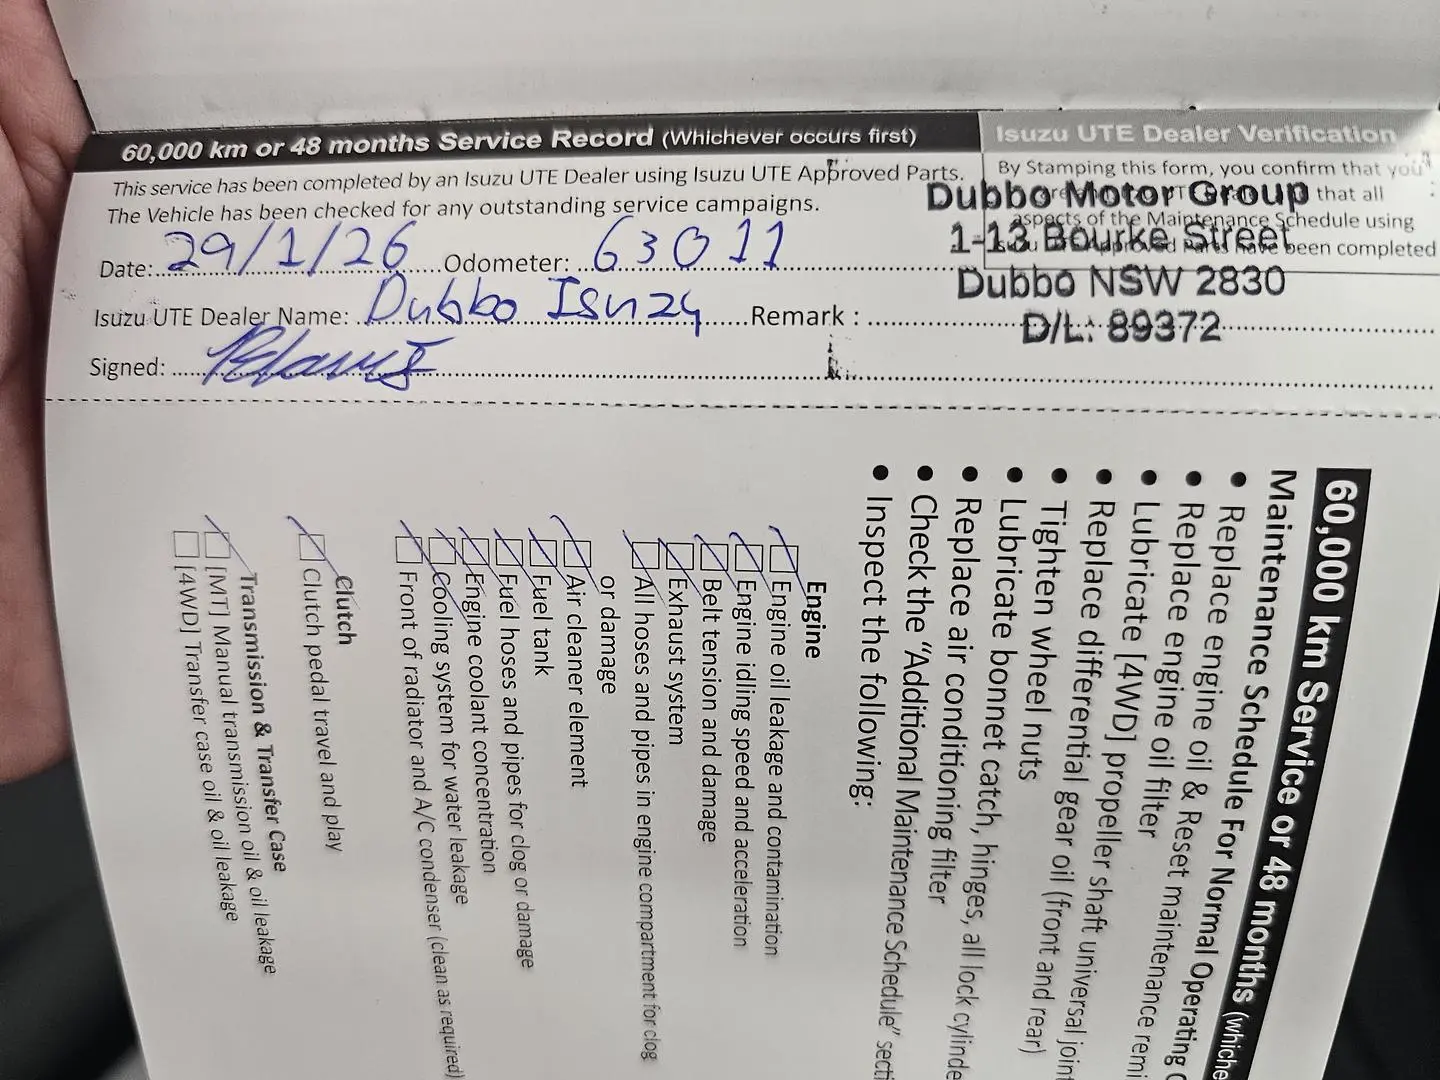 60,000 km or 48 months Service Record (Whichever occurs first)
This service has been completed by an Isuzu UTE Dealer using Isuzu UTE Approved Parts.
The Vehicle has been checked for any outstanding service campaigns.
Date: 29/1/26 Odometer: 63011
Isuzu UTE Dealer Name: Dubbo Isuzu Remark :
Signed:
Isuzu UTE Dealer Verification
By Stamping this form, you confirm that you
that all
aspects of the Maintenance Schedule using
Parts have been completed
Dubbo Motor Group
1-13 Bourke Street
Dubbo NSW 2830
D/L: 89372
60,000 km Service or 48 months (whiche
Maintenance Schedule For Normal Operating C
• Replace engine oil & Reset maintenance remi
• Replace engine oil filter
• Lubricate [4WD] propeller shaft universal joint
• Replace differential gear oil (front and rear)
• Tighten wheel nuts
• Lubricate bonnet catch, hinges, all lock cylinde
• Replace air conditioning filter
• Check the "Additional Maintenance Schedule" secti
• Inspect the following:
Engine
Engine oil leakage and contamination
Engine idling speed and acceleration
Belt tension and damage
Exhaust system
All hoses and pipes in engine compartment for clog
or damage
Air cleaner element
Fuel tank
Fuel hoses and pipes for clog or damage
Engine coolant concentration
Cooling system for water leakage
Front of radiator and A/C condenser (clean as required)
Clutch
Clutch pedal travel and play
Transmission & Transfer Case
[MT] Manual transmission oil & oil leakage
[4WD] Transfer case oil & oil leakage